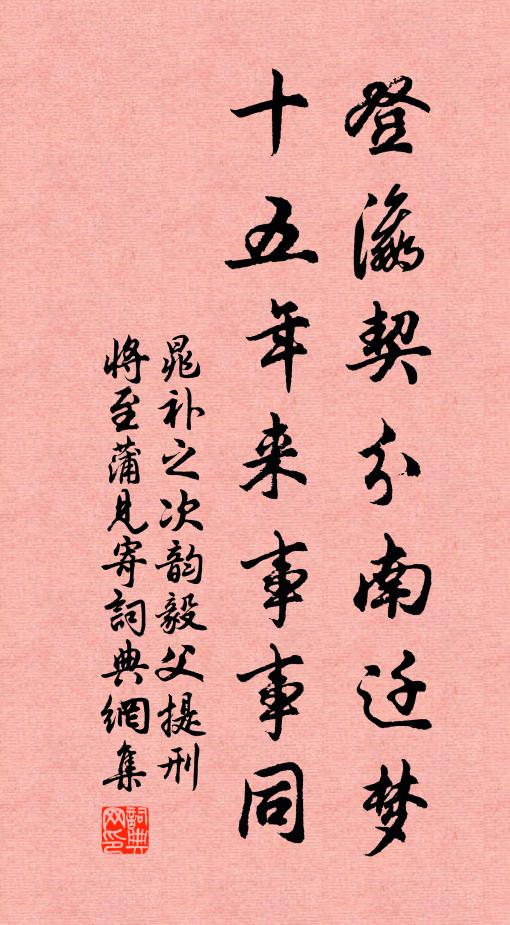 登瀛契分南迁梦
十五年来事事同
晁补之次韵毅父提刑
将至蒲见寄詞典網集
詞典网印